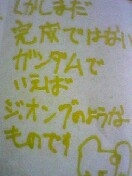 しかしまだ
完成ではない
ガンダムで
いえば
ジオングのような
ものです